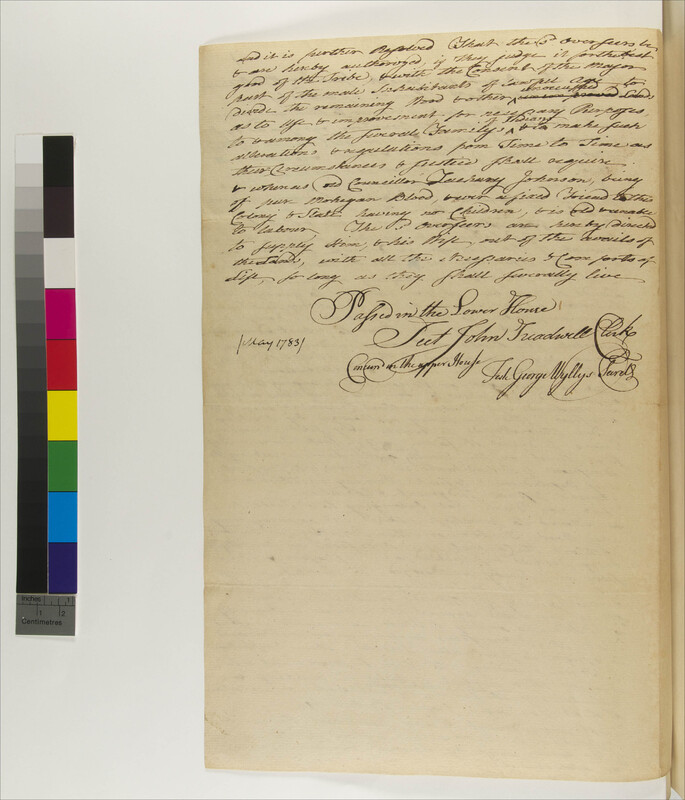 And it is further Resolved That the sd Overseers be,
& are hereby authorized, if they judge it for the best
good of the Tribe, & with the Consent of the Major
part of the male Inhabitants of lawful age to
divide the remaining land & other increased
as to use & improvement for necessary Purposes,
to & among the several Family's of Indians & to make such
alterations & regulations from Time to Time as
their Circumstances & Justice shall require.
& whereas old Councillor Zachary Johnson, being
of pure Mohegan Blood, & ever a fixed Friend to this
Colony & State having no Children, & is old & unable
to labour, The sd Overseers are hereby directed
to supply Him, & his Wife out of the avails of
the Lands, with all the Necessaries & Comforts of
Life, so long as they shall severally live
Passed in the Lower House
Test John Treadwell Clerk
/May 1783/
Concurd in the upper House
Test George Wyllys Secrety
Inches 1
1 2
Centimetres